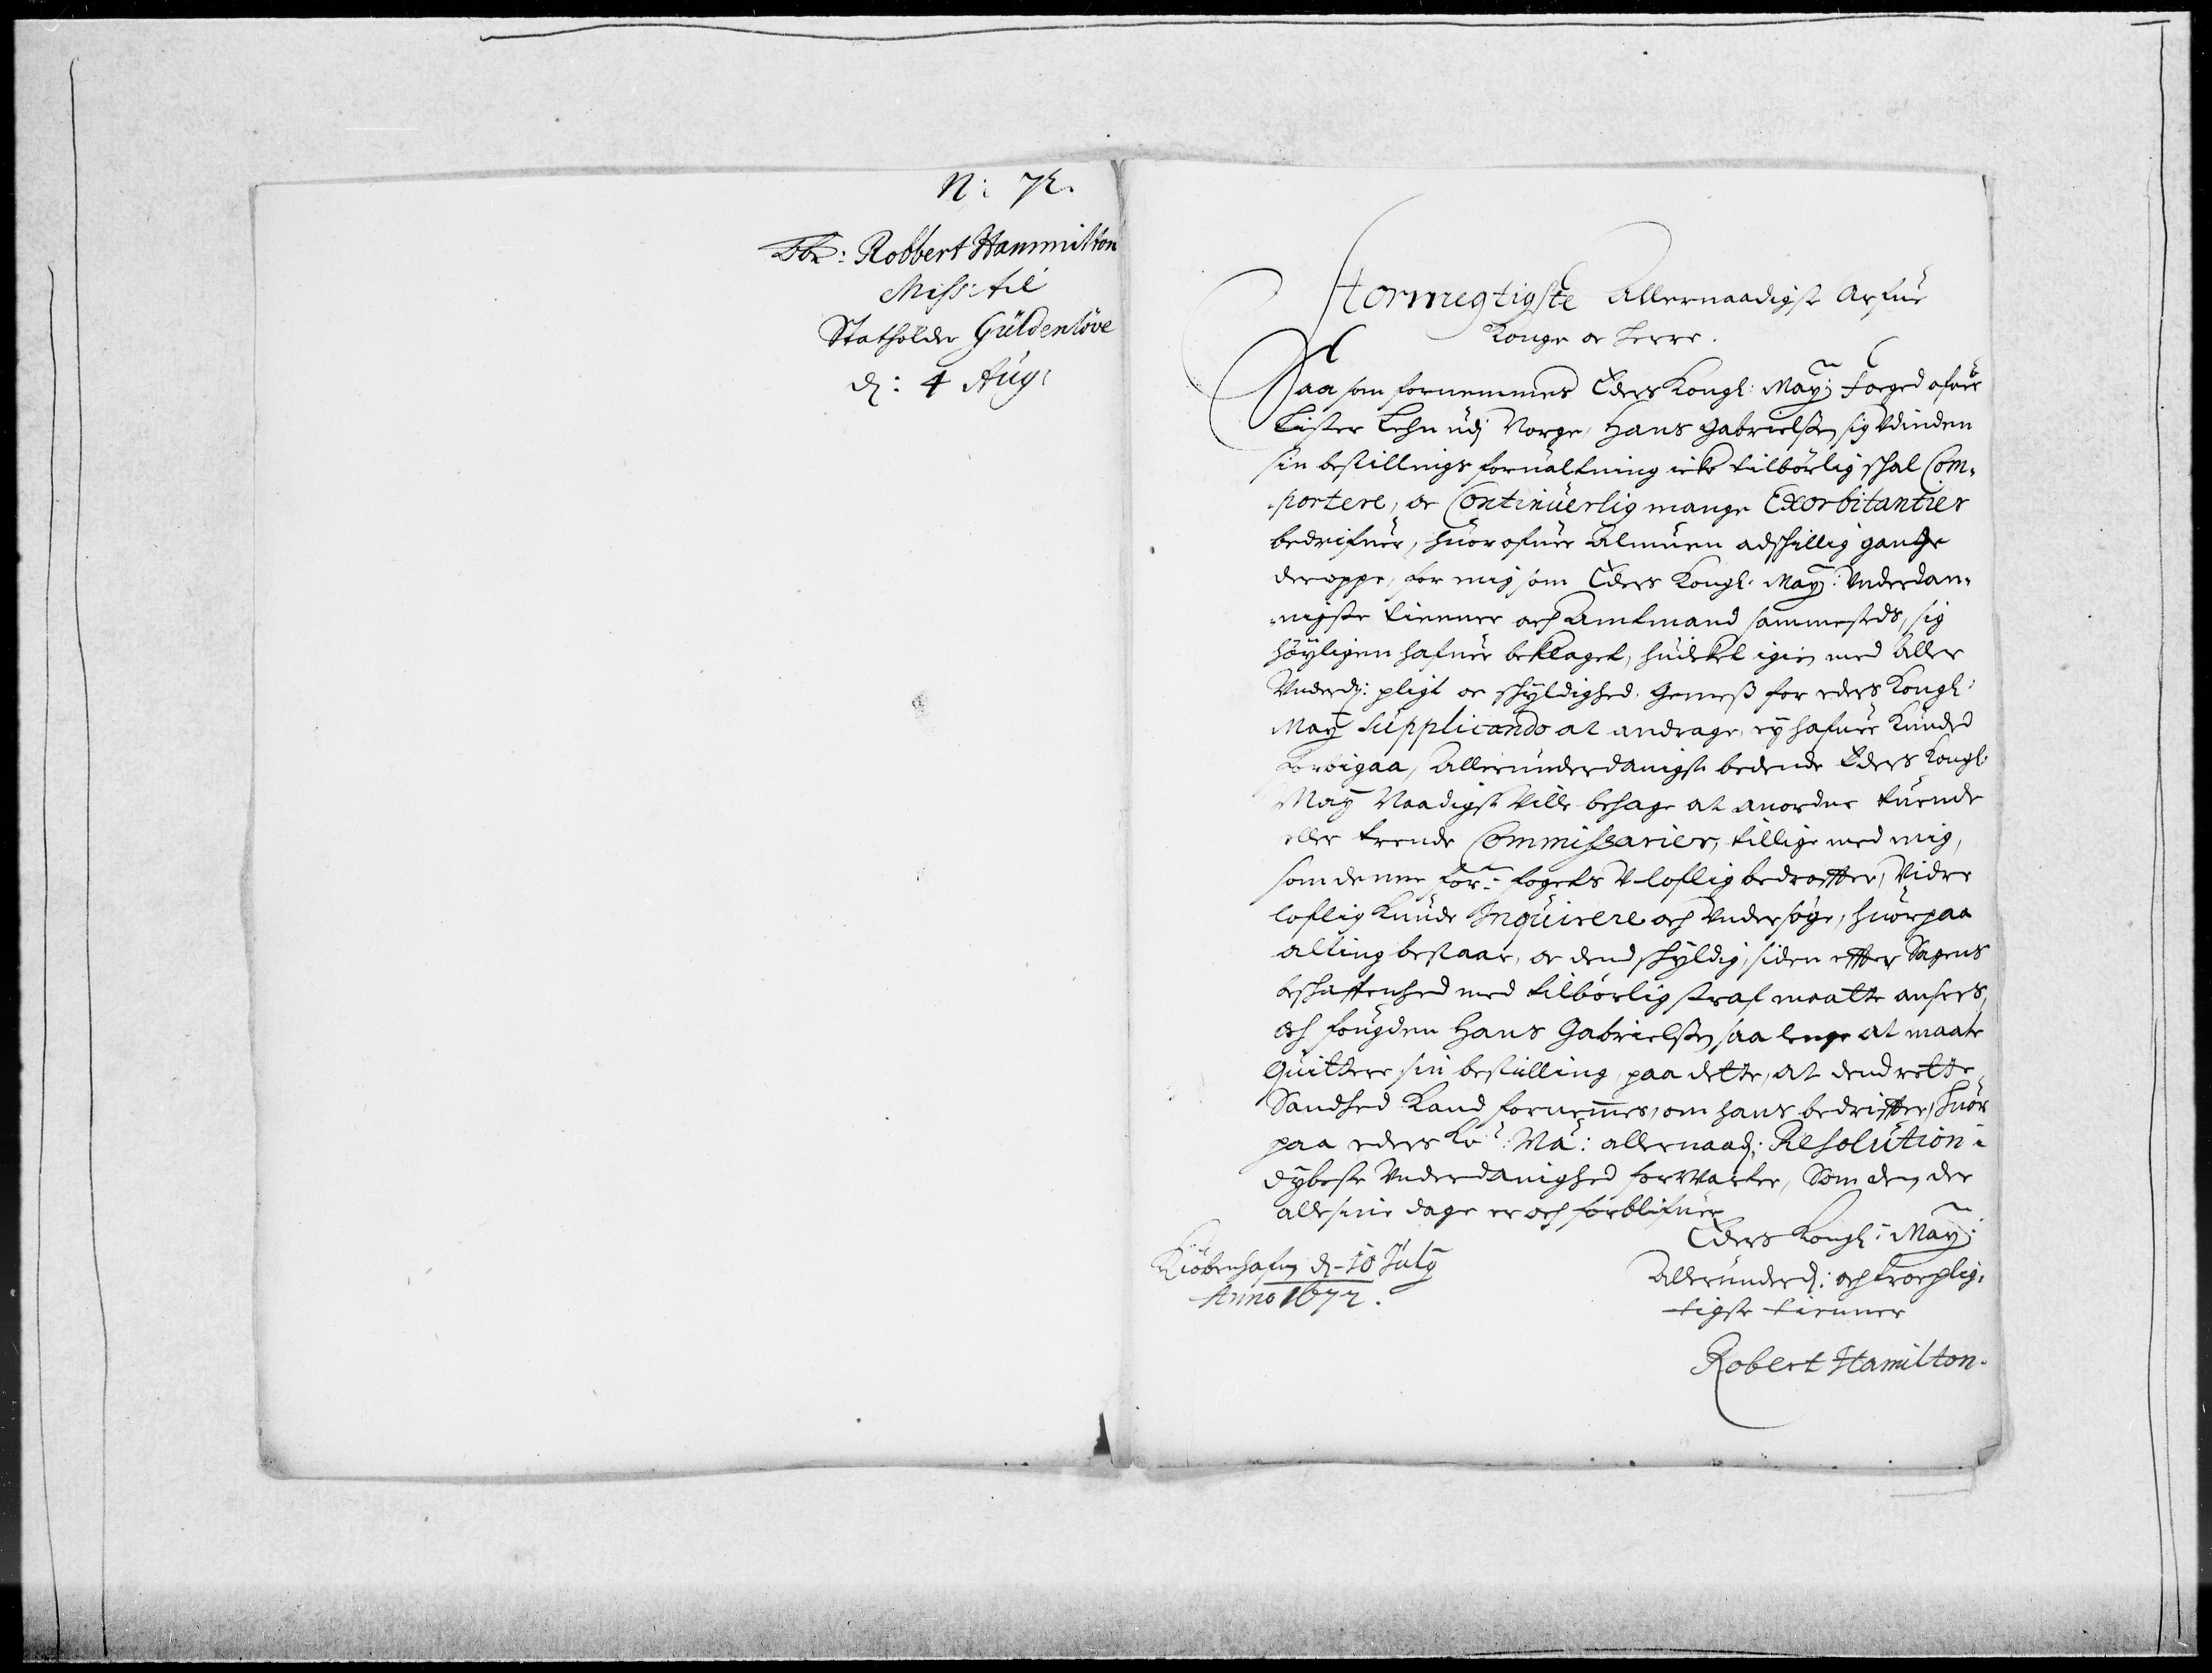 N: 72.
Robbert Hammilton
Miss: til
Statholder Güldenlöve
d: 4 Aug:
Stormegtigste Allernaadigst Arfue
Konge oc Herre.
Saa som fornemmes Eders Kongl: May: Foeged ofuer
Lister Lehn udj Norge, Hans Gabrielsen sig udinden
sin bestillings foruallning icke tilbörlig schal Com-
portere, oc Continuerlig mange Exorbitantier
bedrifuer, huorofuer Almuen adschillig gange
deroppe, for mig som Eders Kongl: May: Vnderdan-
nigste tienner och Amtmand sammesteds, sig
höyligen hafuer beklaget, huilket igien med Aller
Vnderd: pligt oc schyldighed. Gemess for eders Kongl:
May Supplicando at andrage, ey hafuer kunded
forbigaa, Allerunderdanigst bedende Eders Kongl:
May Naadigst ville behage at anordne tuende
eller trende Commissarier, tillige med mig,
som denne for: fogets V-loflig bedrffter, Vidre
loflig kunde Inqvirere och Vndersöge, huorpaa
alting bestaar, oc dend schyldig, siden effter Sagens
beschaffenhed med tilbörlig straf maatte ansees,
och fougden Hans Gabrielsen saa lenge at maate
Quittere sin bestilling, paa dette, at dend rette
Sandhed kand fornemmes, om hans bedriffter, huor
paa eders Ko: Ma: allernaad: Resolution i
dybeste Vnderdanighed forwarter, Som den der
alle sine dage er och forblifuer
Eders Kongl: May:
Allerunderd: och troeplig-
tigste tienner
Robert Hamilton.
Kiöbenhafn d- 10 July
Anno 1672.